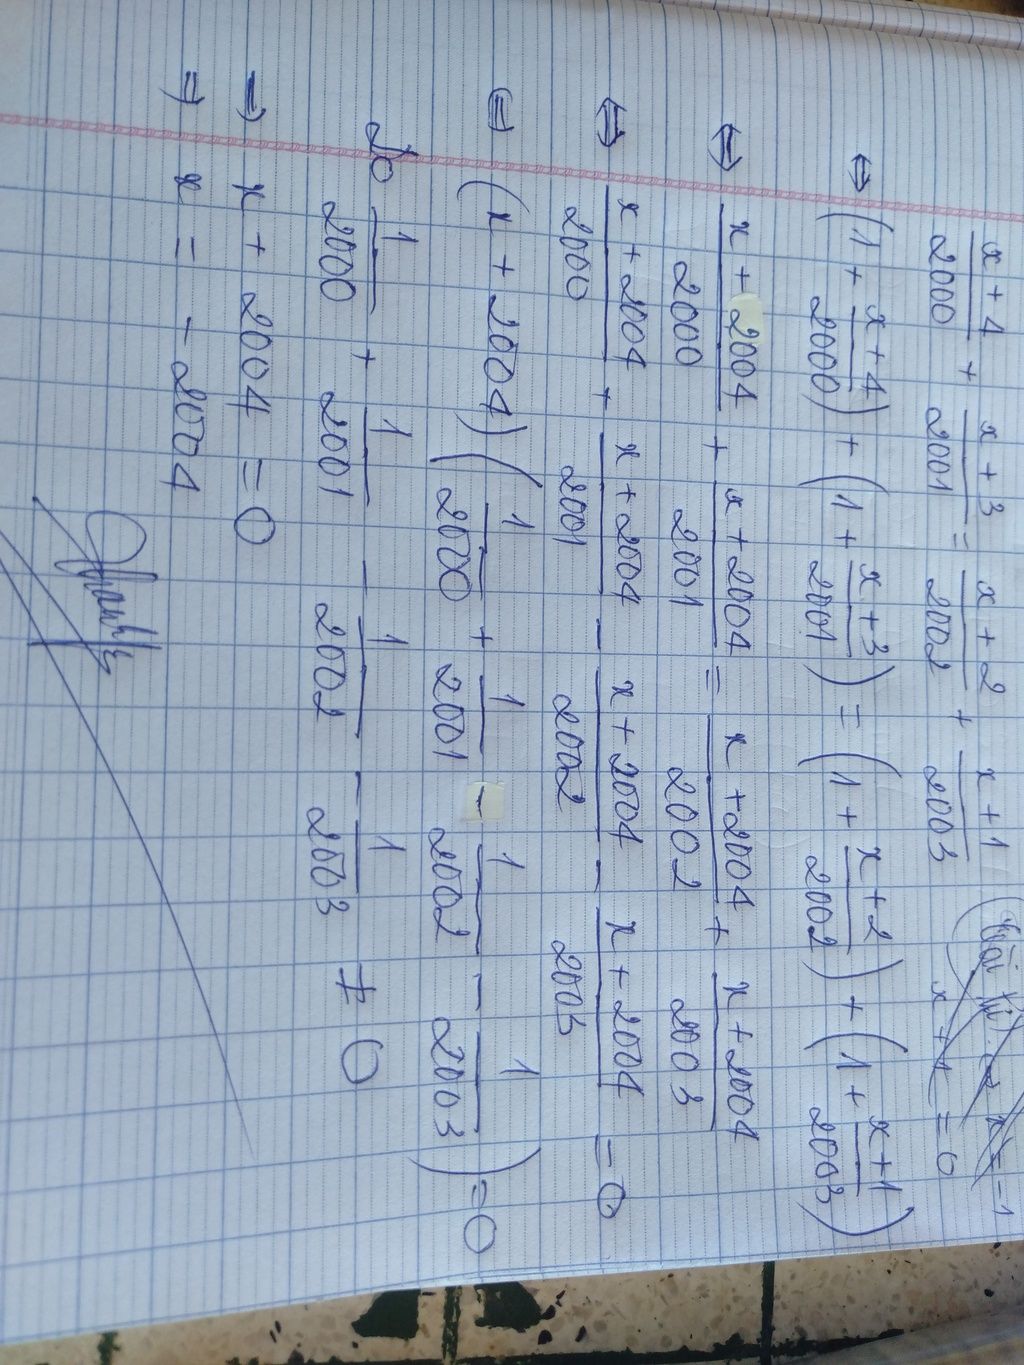 x+4/2000 + x+3/2001 = x+2/2002 + x+1/2003
x + 1 = 0
x = -1
⇔ (1 + x+4/2000) + (1 + x+3/2001) = (1 + x+2/2002) + (1 + x+1/2003)
⇔ x+2004/2000 + x+2004/2001 = x+2004/2002 + x+2004/2003
⇔ x+2004/2000 + x+2004/2001 - x+2004/2002 - x+2004/2003 = 0
⇔ (x+2004)(1/2000 + 1/2001 - 1/2002 - 1/2003) = 0
Do 1/2000 + 1/2001 - 1/2002 - 1/2003 ≠ 0
⇒ x + 2004 = 0
⇒ x = -2004